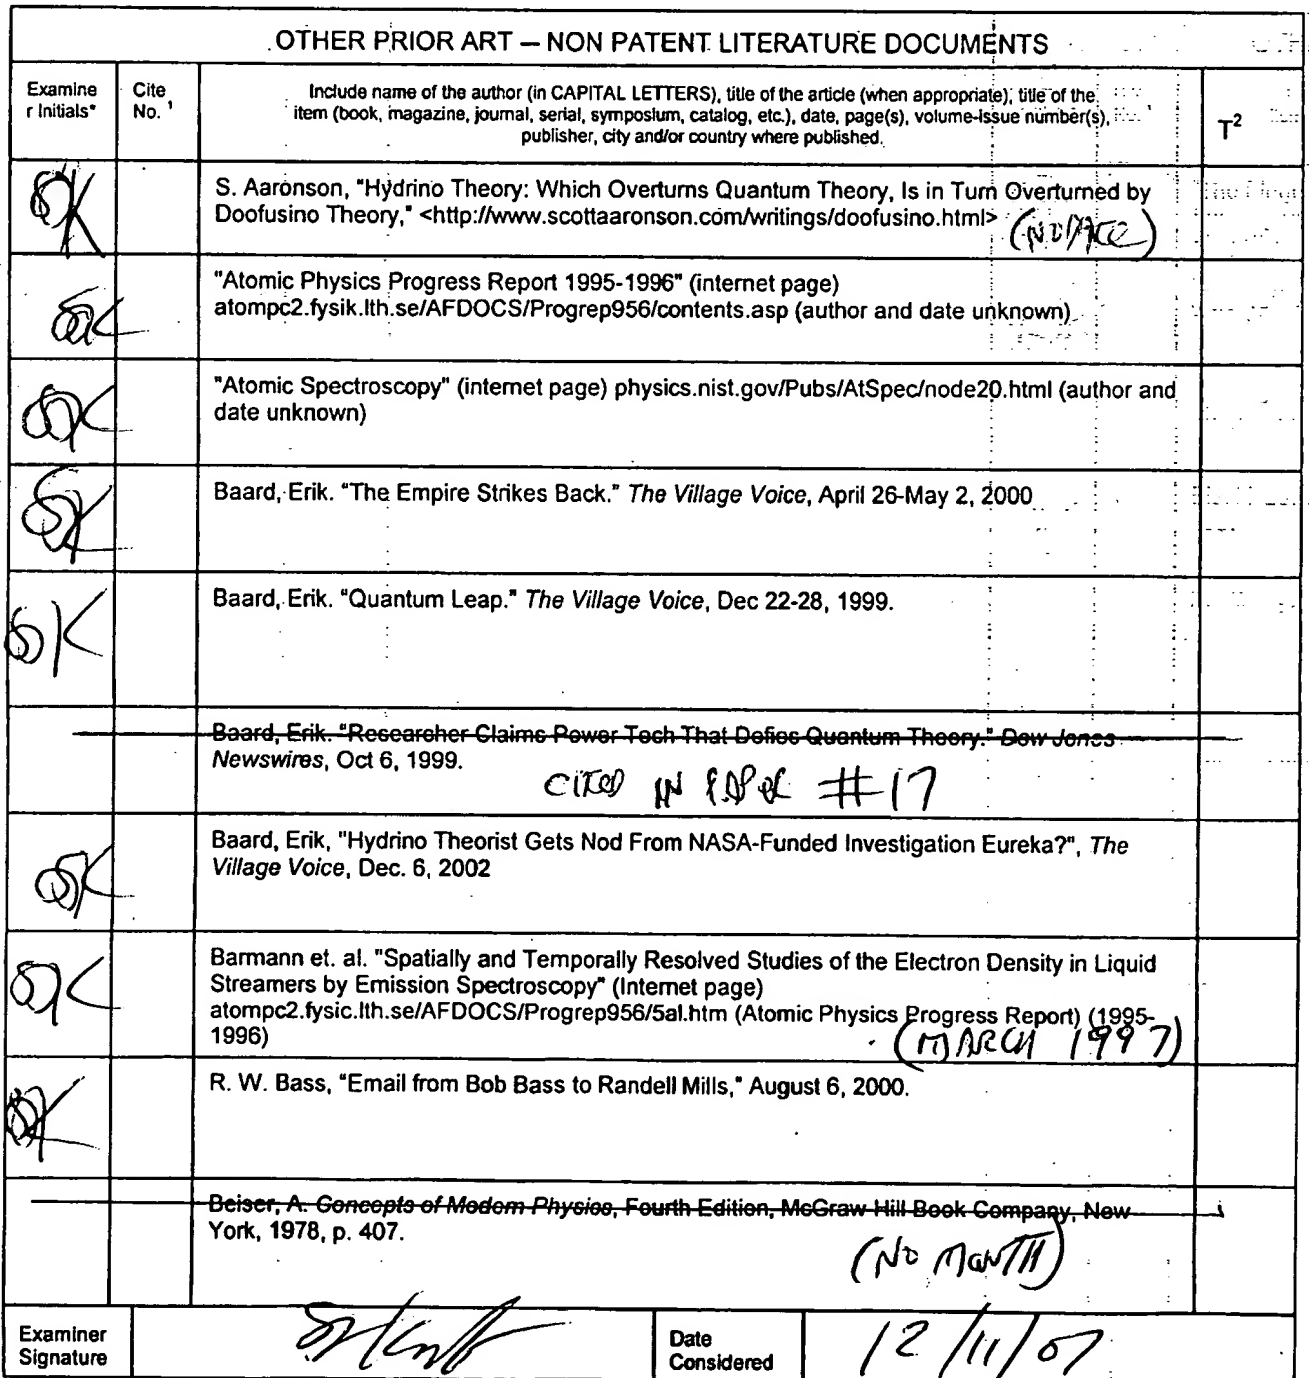 OTHER PRIOR ART – NON PATENT LITERATURE DOCUMENTS
Examine
r Initials*
Cite
No. 1
Include name of the author (in CAPITAL LETTERS), title of the article (when appropriate), title of the
item (book, magazine, journal, serial, symposium, catalog, etc.), date, page(s), volume-issue number(s),
publisher, city and/or country where published.
T2
S. Aaronson, "Hydrino Theory: Which Overturns Quantum Theory, Is in Turn Overturned by
Doofusino Theory," <http://www.scottaaronson.com/writings/doofusino.html>
SK
"Atomic Physics Progress Report 1995-1996" (internet page)
atompc2.fysik.lth.se/AFDOCS/Progrep956/contents.asp (author and date unknown)
SK
"Atomic Spectroscopy" (internet page) physics.nist.gov/Pubs/AtSpec/node20.html (author and
date unknown)
SK
Baard, Erik. "The Empire Strikes Back." The Village Voice, April 26-May 2, 2000
SK
Baard, Erik. "Quantum Leap." The Village Voice, Dec 22-28, 1999.
SK
Baard, Erik. "Researcher Claims Power Tech That Defies Quantum Theory." Dow Jones
Newswires, Oct 6, 1999.
CITED IN PAPER #17
Baard, Erik, "Hydrino Theorist Gets Nod From NASA-Funded Investigation Eureka?", The
Village Voice, Dec. 6, 2002
SK
Barmann et. al. "Spatially and Temporally Resolved Studies of the Electron Density in Liquid
Streamers by Emission Spectroscopy" (Internet page)
atompc2.fysic.lth.se/AFDOCS/Progrep956/5al.htm (Atomic Physics Progress Report) (1995-
1996)
(MARCH 1997)
SK
R. W. Bass, "Email from Bob Bass to Randell Mills," August 6, 2000.
SK
Beiser, A. Concepts of Modern Physics, Fourth Edition, McGraw-Hill Book Company, New
York, 1978, p. 407.
(NO MONTH)
Examiner
Signature
Date
Considered
12/11/07